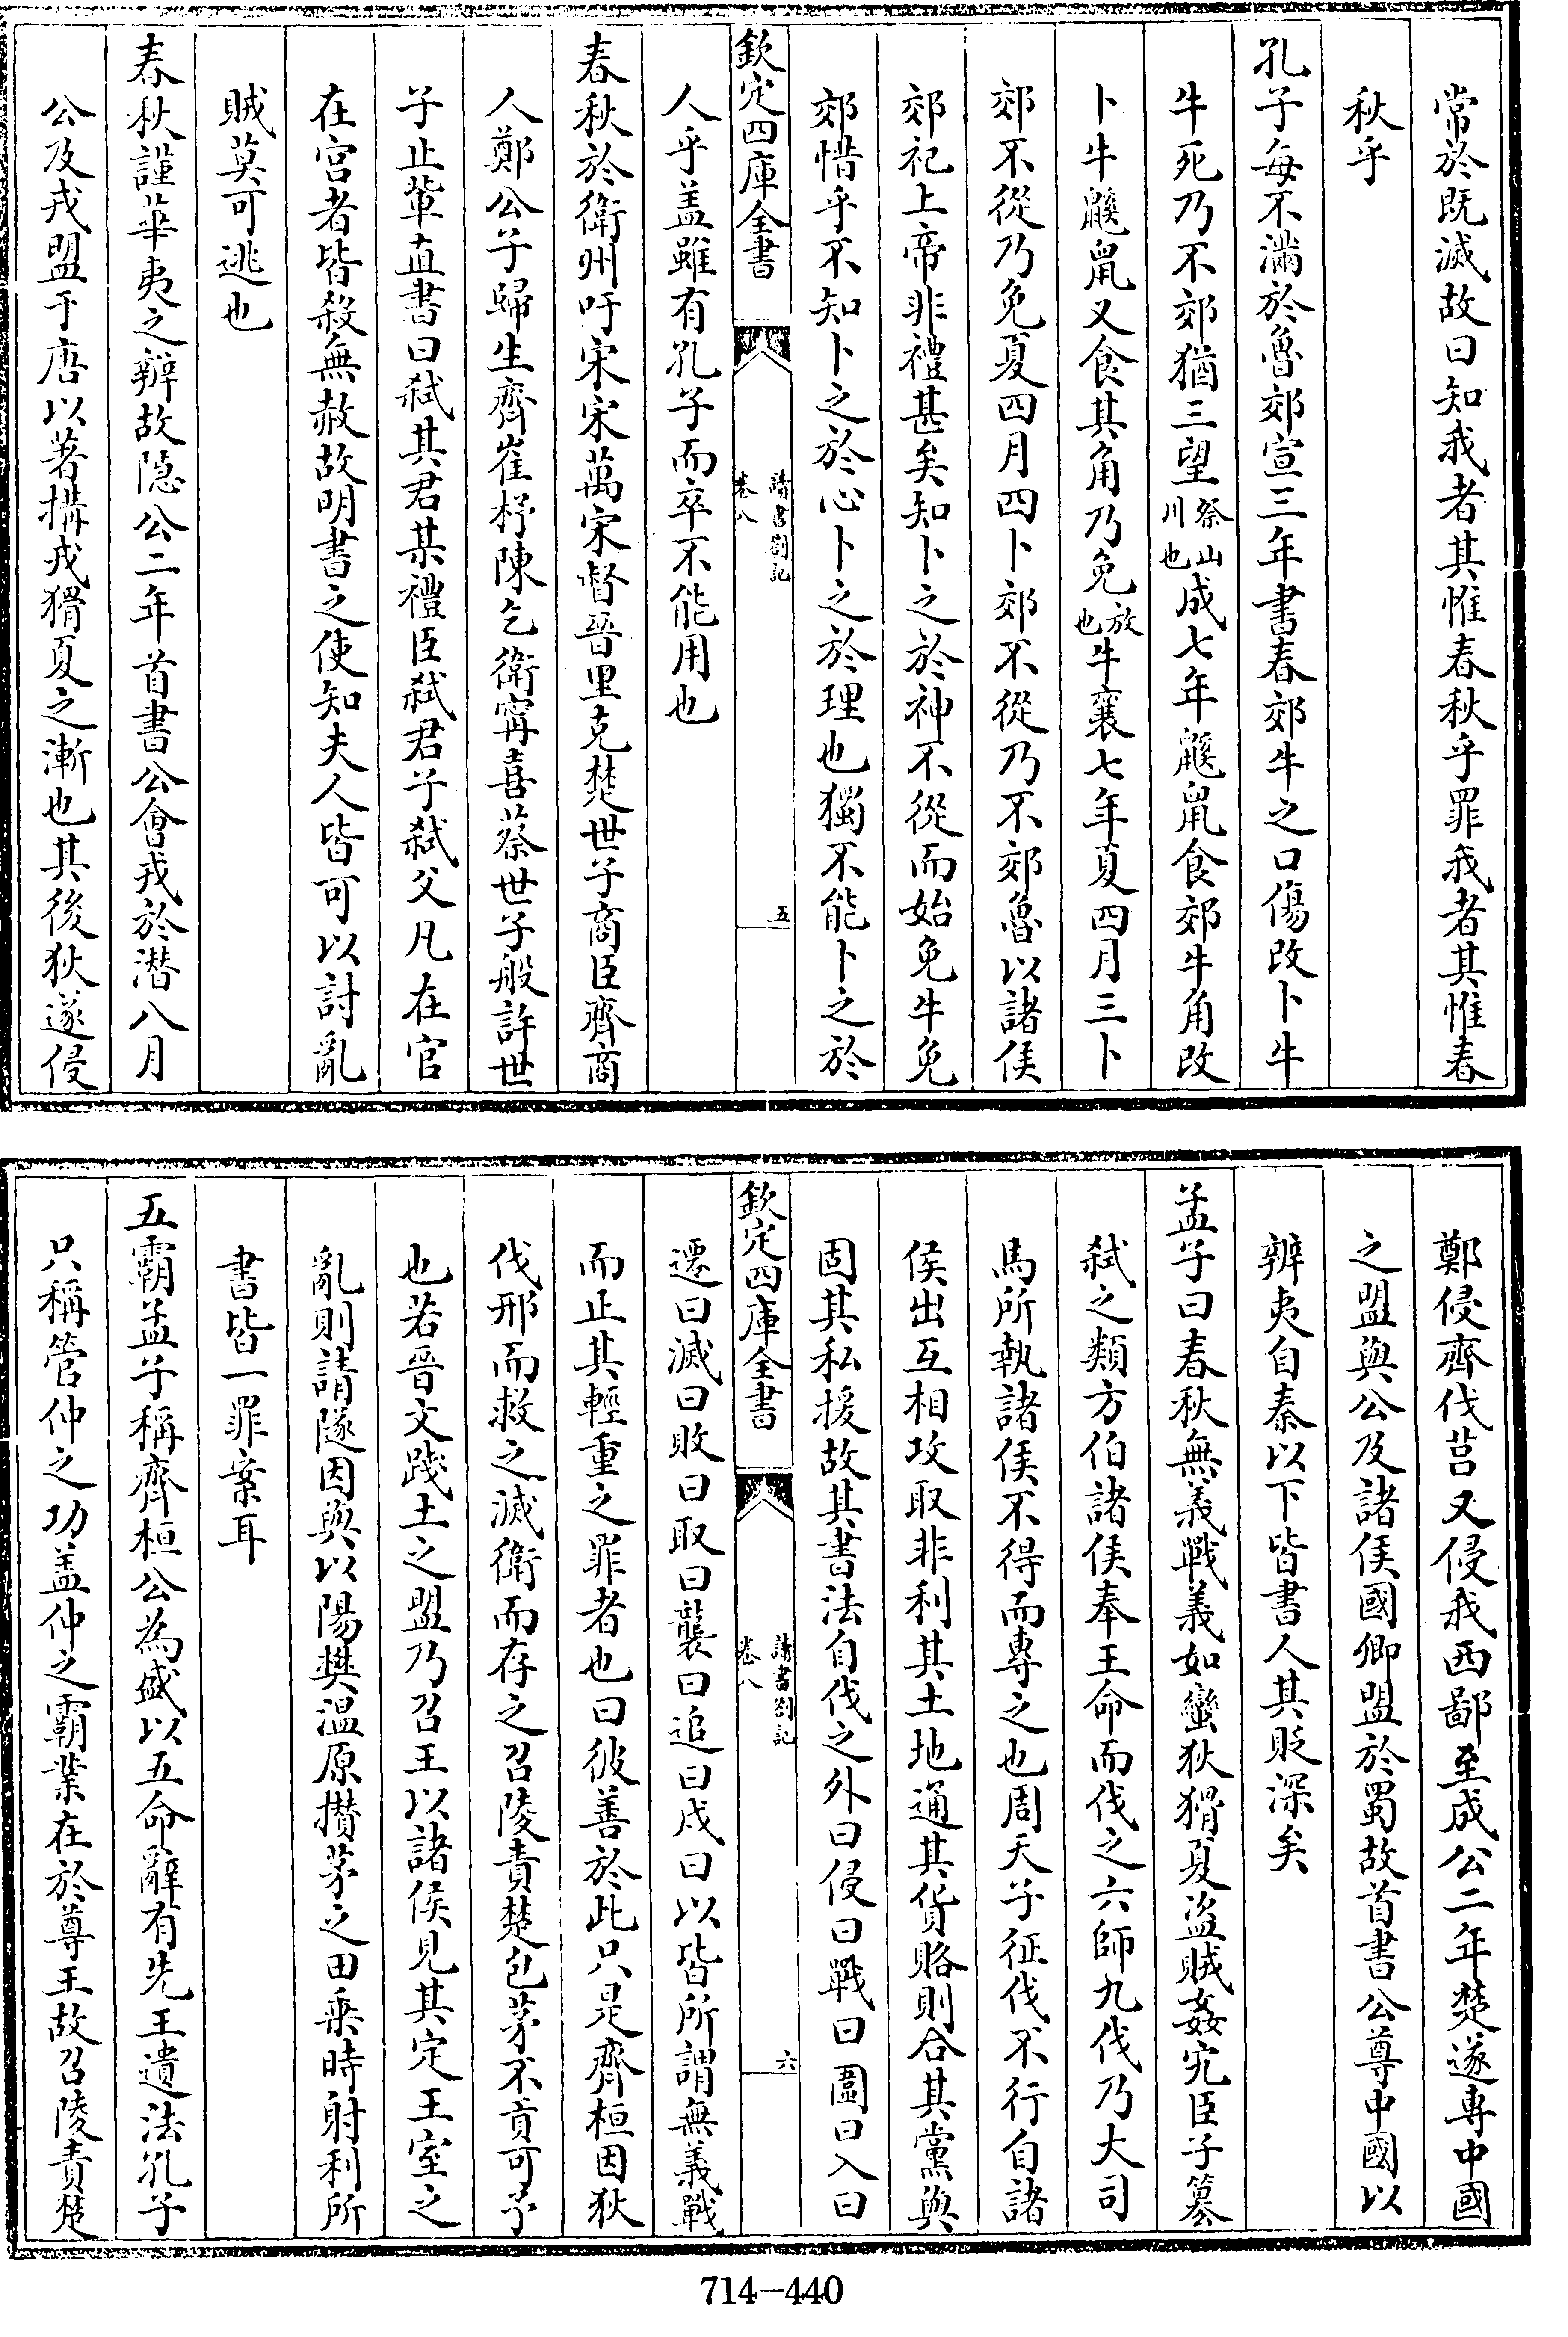 常於既滅故曰知我者其惟春秋乎罪我者其惟春
秋乎
孔子每不滿於魯郊宣三年書春郊牛之口傷改卜牛
牛死乃不郊猶三望祭山川也成七年鼷鼠食郊牛角改
卜牛鼷鼠又食其角乃免放也牛襄七年夏四月三卜
郊不從乃免夏四月四卜郊不從乃不郊魯以諸侯
郊祀上帝非禮甚矣知卜之於神不從而始免牛免
郊惜乎不知卜之於心卜之於理也獨不能卜之於
欽定四庫全書
讀書劄記
卷八
五
人乎盖雖有孔子而卒不能用也
春秋於衛州吁宋宋萬宋督晉里克楚世子商臣齊商
人鄭公子歸生齊崔杼陳乞衛甯喜蔡世子般許世
子止軰直書曰弑其君某禮臣弑君子弑父凡在官
在宫者皆殺無赦故明書之使知夫人皆可以討亂
賊莫可逃也
春秋謹華夷之辨故隐公二年首書公會戎於潛八月
公及戎盟于唐以著搆戎猾夏之漸也其後狄遂侵
鄭侵齊伐莒又侵我西鄙至成公二年楚遂專中國
之盟與公及諸侯國卿盟於蜀故首書公尊中國以
辨夷自秦以下皆書人其貶深矣
孟子曰春秋無義戰義如蠻狄猾夏盗賊姦宄臣子簒
弑之類方伯諸侯奉王命而伐之六師九伐乃大司
馬所執諸侯不得而專之也周天子征伐不行自諸
侯出互相攻取非利其土地通其貨賂則合其黨與
固其私援故其書法自伐之外曰侵曰戰曰圍曰入曰
欽定四庫全書
讀書劄記
卷八
六
遷曰滅曰敗曰取曰襲曰追曰戍曰以皆所謂無義戰
而止其輕重之罪者也曰彼善於此只是齊桓因狄
伐邢而救之滅衛而存之召陵責楚包茅不貢可予
也若晉文踐土之盟乃召王以諸侯見其定王室之
亂則請隧因與以陽樊温原攅茅之田乗時射利所
書皆一罪案耳
五霸孟子稱齊桓公為盛以五命辭有先王遺法孔子
只稱管仲之功盖仲之霸業在於尊王故召陵責楚
714-440